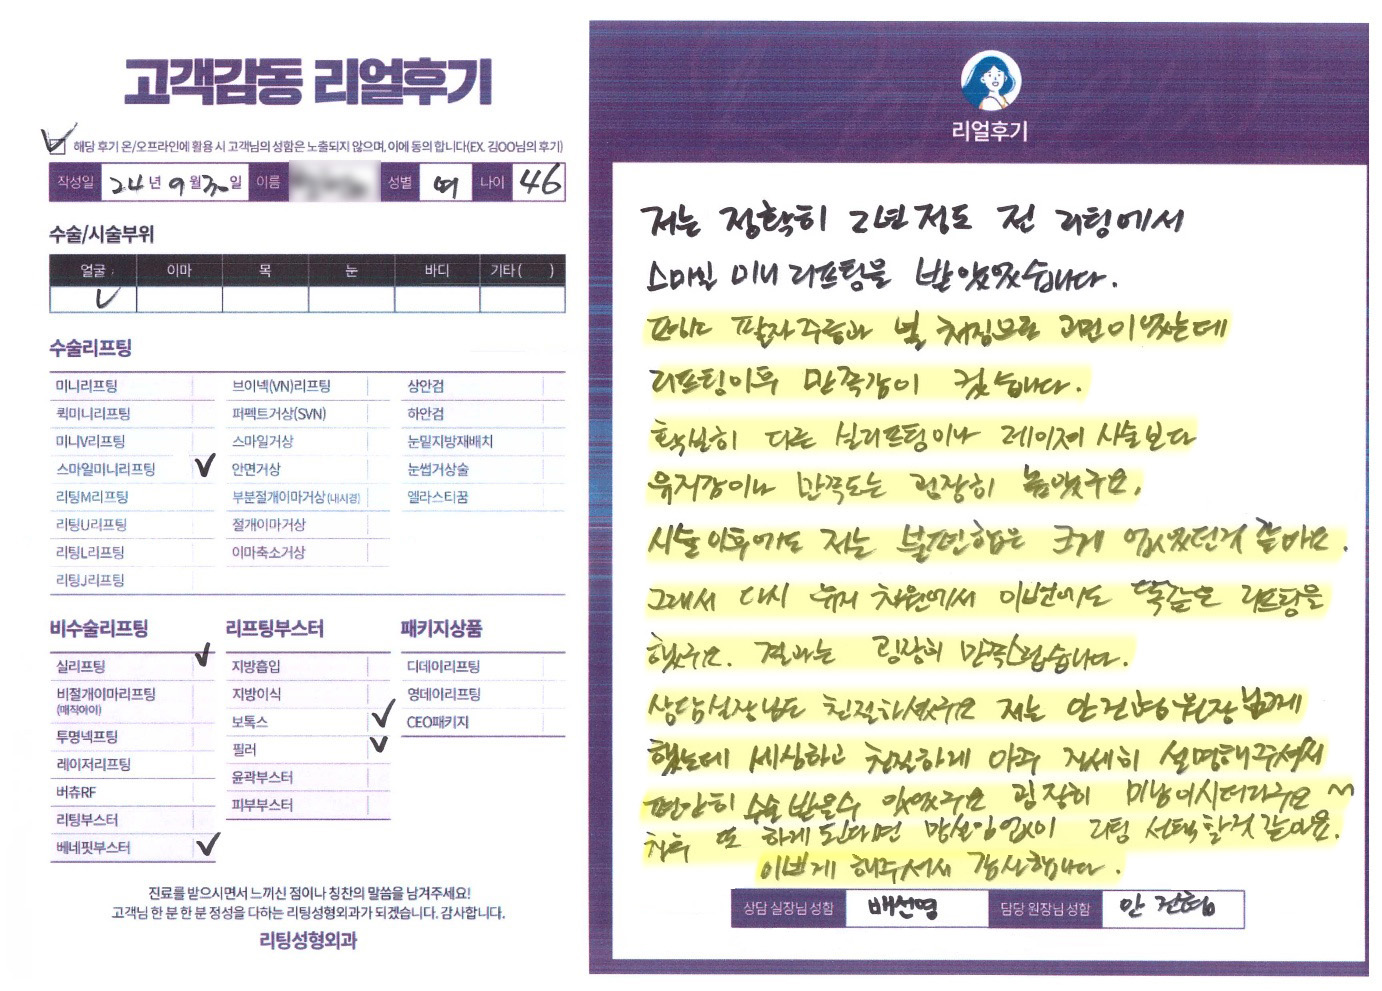 고객감동 리얼후기
해당 후기 온/오프라인에 활용 시 고객님의 성함은 노출되지 않으며, 이에 동의 합니다(EX. 김OO님의 후기)
작성일 24년 9월 30일 이름 성별 여 나이 46
수술/시술부위
얼굴 이마 목 눈 바디 기타 ( )
수술리프팅
미니리프팅 브이넥(VN)리프팅 상안검
퀵미니리프팅 퍼펙트거상(SVN) 하안검
미니V리프팅 스마일거상 눈밑지방재배치
스마일미니리프팅 안면거상 눈썹거상술
리팅M리프팅 부분절개이마거상(내시경) 엘라스티꿈
리팅U리프팅 절개이마거상
리팅L리프팅 이마축소거상
리팅J리프팅
비수술리프팅 리프팅부스터 패키지상품
실리프팅 지방흡입 디데이리프팅
비절개이마리프팅 지방이식 영데이리프팅
(매직아이)
투명넥프팅 보톡스 CEO패키지
레이저리프팅 필러
버츄RF 윤곽부스터
리팅부스터 피부부스터
베네핏부스터
진료를 받으시면서 느끼신 점이나 칭찬의 말씀을 남겨주세요!
고객님 한 분 한 분 정성을 다하는 리팅성형외과가 되겠습니다. 감사합니다.
리팅성형외과
리얼후기
저는 정확히 2년정도 전 리팅에서
스마일 미니 리프팅을 받았었습니다.
팔자주름과 볼 처짐으로 고민이었는데
리프팅이후 만족감이 컸습니다.
확실히 다른 실리프팅이나 레이저 시술보다
유지감이나 만족도는 굉장히 높았구요,
시술이후에도 저는 불편함은 크게 없었던것 같아요.
그래서 다시 유지 차원에서 이번에도 똑같은 리프팅을
했구요. 결과는 굉장히 만족스럽습니다.
상담실장님도 친절하셨구요 저는 안건형 원장님께
했는데 세심하고 친절하게 아주 자세히 설명해주셔서
편안히 수술 받을수 있었구요 굉장히 미남이시더라구요 ~
차후 또 하게 된다면 망설임없이 리팅 선택할것 같아요.
이쁘게 해주셔서 감사합니다.
상담 실장님 성함 배선영 담당 원장님 성함 안건형